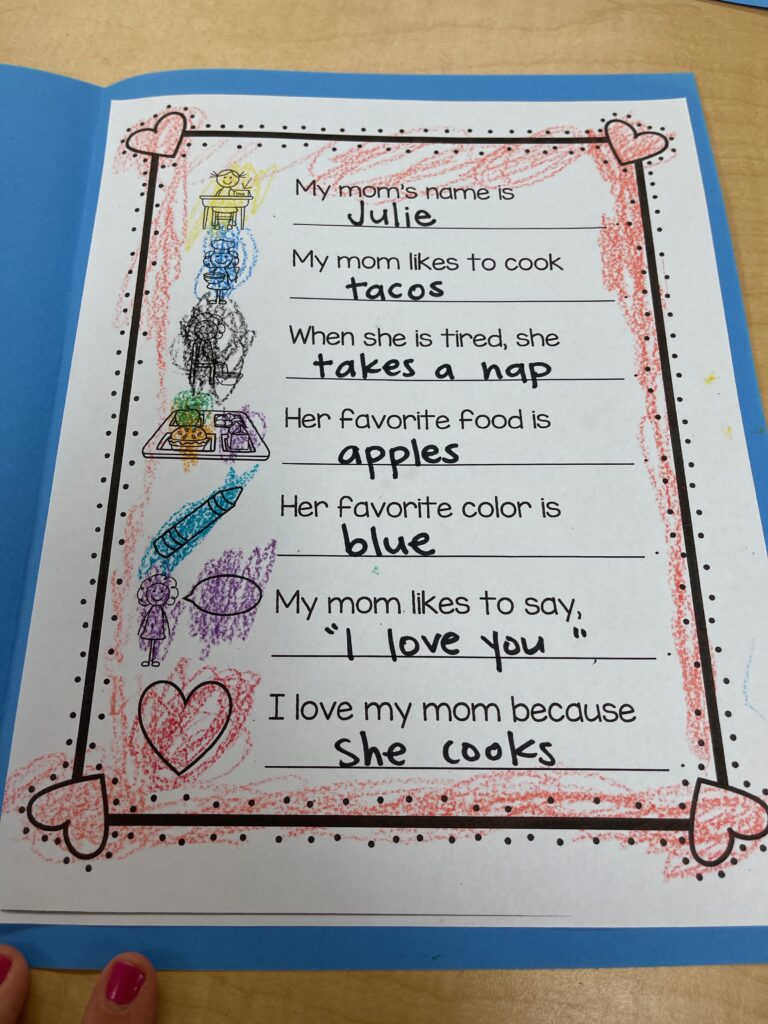 Tina
My mom's name is
Julie
My mom likes to cook
tacos
When she is tired, she
takes a nap
Her favorite food is
apples
Her favorite color is
blue
My mom likes to say,
"I love you"
I love my mom because
she cooks